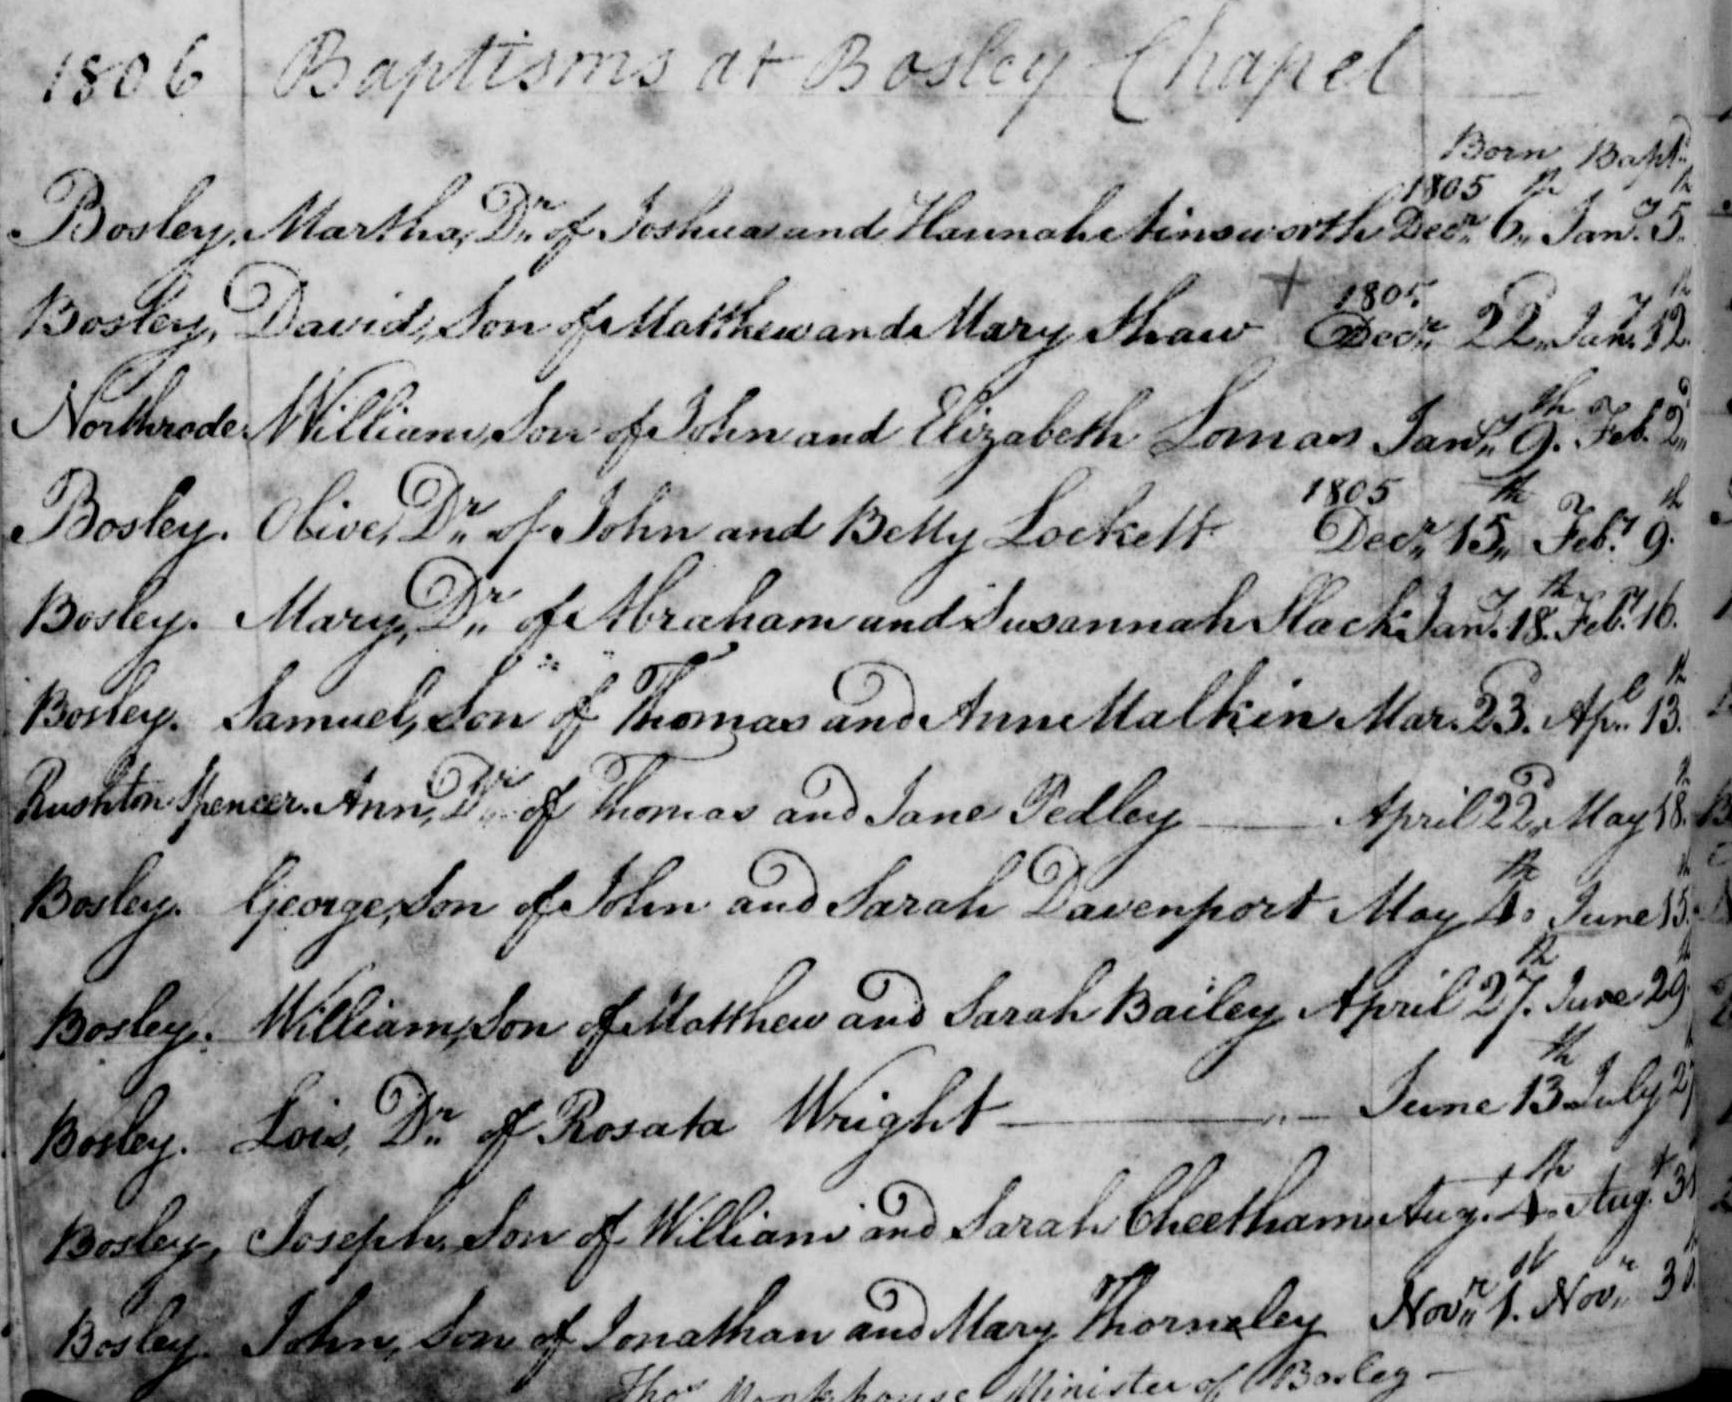 1806 Baptisms at Bosley Chapel
Born Bapt.
Bosley. Martha, Dr. of Joshua and Hannah Ainsworth 1805 Decr. 6th Jany. 5th
Bosley, David, Son of Matthew and Mary Shaw + 1805 Decr. 22d Jany. 12th
Northrode. William, Son of John and Elizabeth Lomas Jany. 9th. Feb. 2d
Bosley. Olive, Dr. of John and Betty Lockett 1805 Decr. 15th Feby. 9th.
Bosley. Mary, Dr. of Abraham and Susannah Slack Jany. 18th. Feby. 16.
Bosley. Samuel, Son of Thomas and Ann Malkin Mar. 23d. Apl. 13th.
Rushton Spencer. Ann, Dr. of Thomas and Jane Pedley — April 22d, May 18th.
Bosley. George, Son of John and Sarah Davenport May 4th. June 15th.
Bosley. William, Son of Matthew and Sarah Bailey April 27th. June 29th
Bosley. Lois, Dr. of Rosata Wright — June 13th July 27
Bosley, Joseph, Son of William and Sarah Cheetham Augt. 4th. Augt. 31
Bosley. John, Son of Jonathan and Mary Thorneley Novr. 1st. Novr. 30th
Thos. Monkhouse Minister of Bosley —